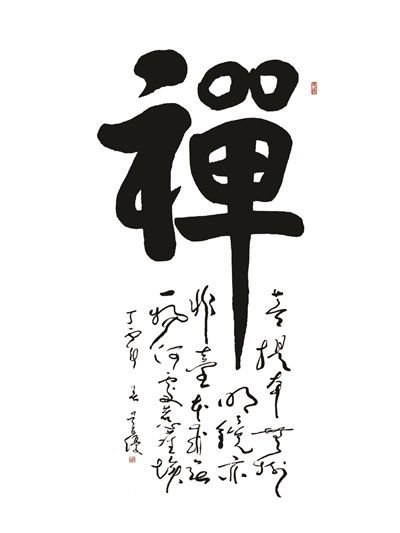 禪
菩提本無樹
明鏡亦
非臺本來無
一物何處惹塵埃
丁酉年春